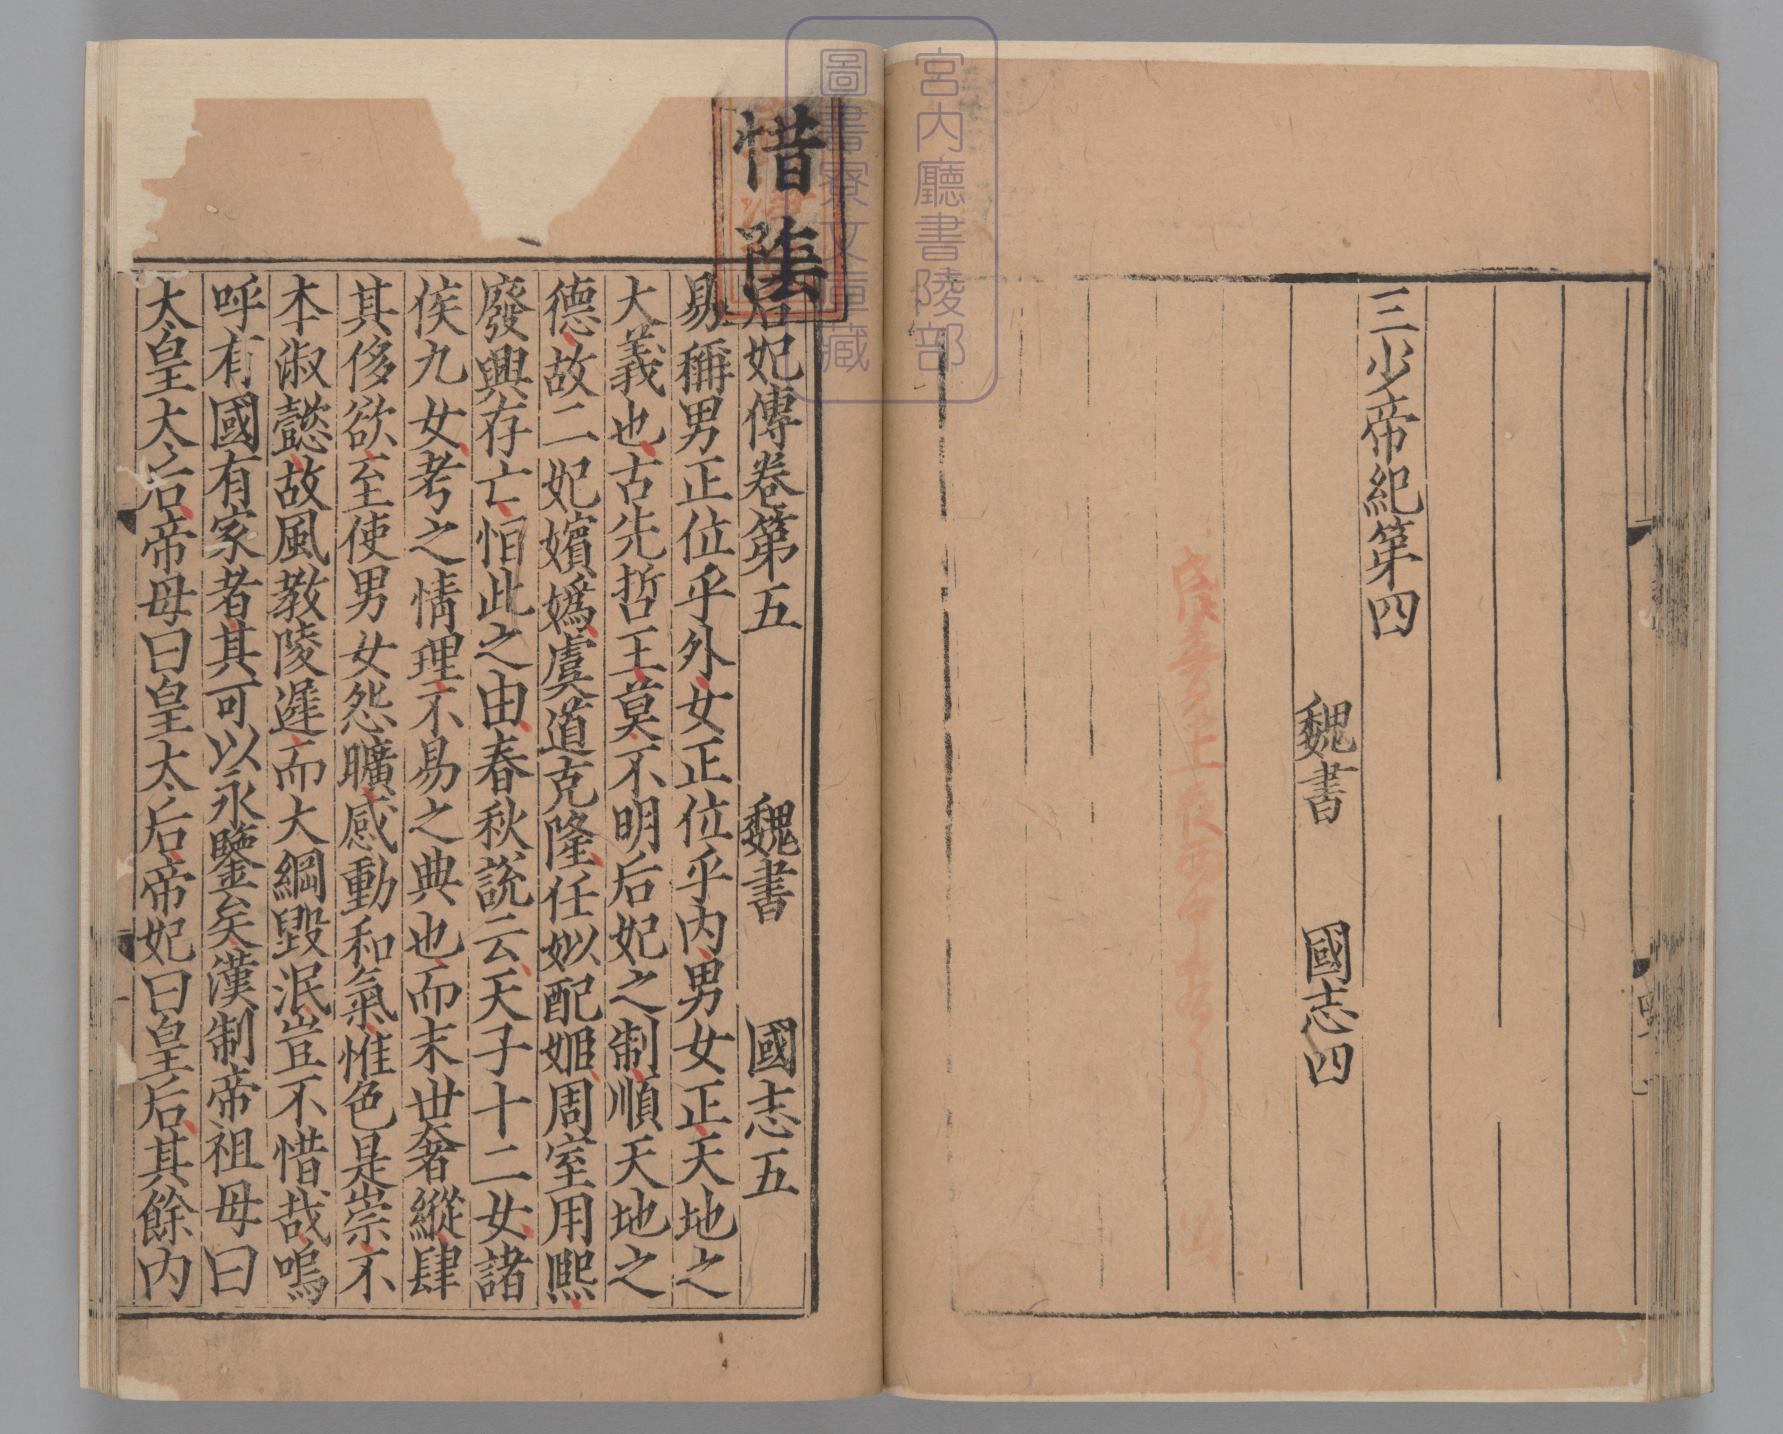 三少帝紀第四
魏書 國志四
后妃傳卷第五 魏書 國志五
易稱男正位乎外女正位乎内男女正天地之
大義也古先哲王莫不明后妃之制順天地之
德故二妃嬪嬀虞道克隆任姒配姬周室用熙
廢興存亡恒此之由春秋說云天子十二女諸
侯九女考之情理不易之典也而末世奢縱肆
其侈欲至使男女怨曠感動和氣惟色是崇不
本淑懿故風教陵遲而大綱毀泯豈不惜哉嗚
呼有國有家者其可以永鑒矣漢制帝祖母曰
太皇太后帝母曰皇太后帝妃曰皇后其餘内
惜陰
宮内廳書陵部
圖書寮文庫藏